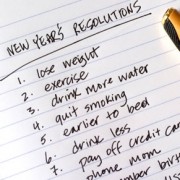 NEW YEAR'S RESOLUTIONS
1. lose weight
2. exercise
3. drink more water
4. quit smoking
5. earlier to bed
6. drink less
7. pay off credit car
phone mom
ember birth